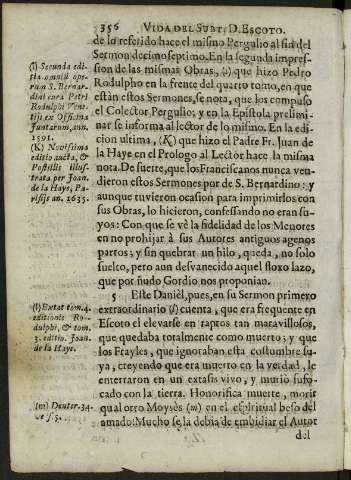 356 VIDA DEL SUBT. D. ESCOTO.
de lo referido hace el mismo Pergulio al fin del
Sermon decimoseptimo. En la segunda impres-
sion de las mismas Obras, (I) que hizo Pedro
Rodulpho en la frente del quarto tomo, en que
están estos Sermones, se nota, que los compuso
el Colector Pergulio; y en la Epistola prelimi-
nar se informa al lector de lo mismo. En la edi-
cion ultima, (K) que hizo el Padre Fr. Juan de
la Haye en el Prologo al Lector hace la misma
nota. De suerte, que los Franciscanos nunca ven-
dieron estos Sermones por de S. Bernardino: y
aunque tuvieron ocasion para imprimirlos con
sus Obras, lo hicieron, confessando no eran su-
yos: Con que se vè la fidelidad de los Menores
en no prohijar à sus Autores antiguos agenos
partos; y sin quebrar un hilo, queda, no solo
suelto, pero aun desvanecido aquel floxo lazo,
que por ñudo Gordio nos proponian.
5 Este Danièl, pues, en su Sermon primero
extraordinario (l) cuenta, que era frequente en
Escoto el elevarse en raptos tan maravillosos,
que quedaba totalmente como muerto; y que
los Frayles, que ignoraban esta costumbre su-
ya, creyendo que era muerto en la verdad, le
enterraron en un extasis vivo, y murió sufo-
cado con la tierra. Honorifica muerte, morir
qual otro Moysès (m) en el espiritual beso del
amado: Mucho se la debia de embidiar el Autor
del
(I) Secunda edi-
tio omniũ ope-
rum S. Bernar-
dini cura Petri
Rodulphi Vene-
tijs ex Officina
Juntarum, ann.
1591.
(K) Novissima
editio aucta, &
Postillis illus-
trata per Joan.
de la Haye, Pa-
risijs an. 1635.
(l) Extat tom. 4.
editionis Ro-
dulphi, & tom.
3. editio. Joan.
de la Haye.
(m) Deuter. 34.